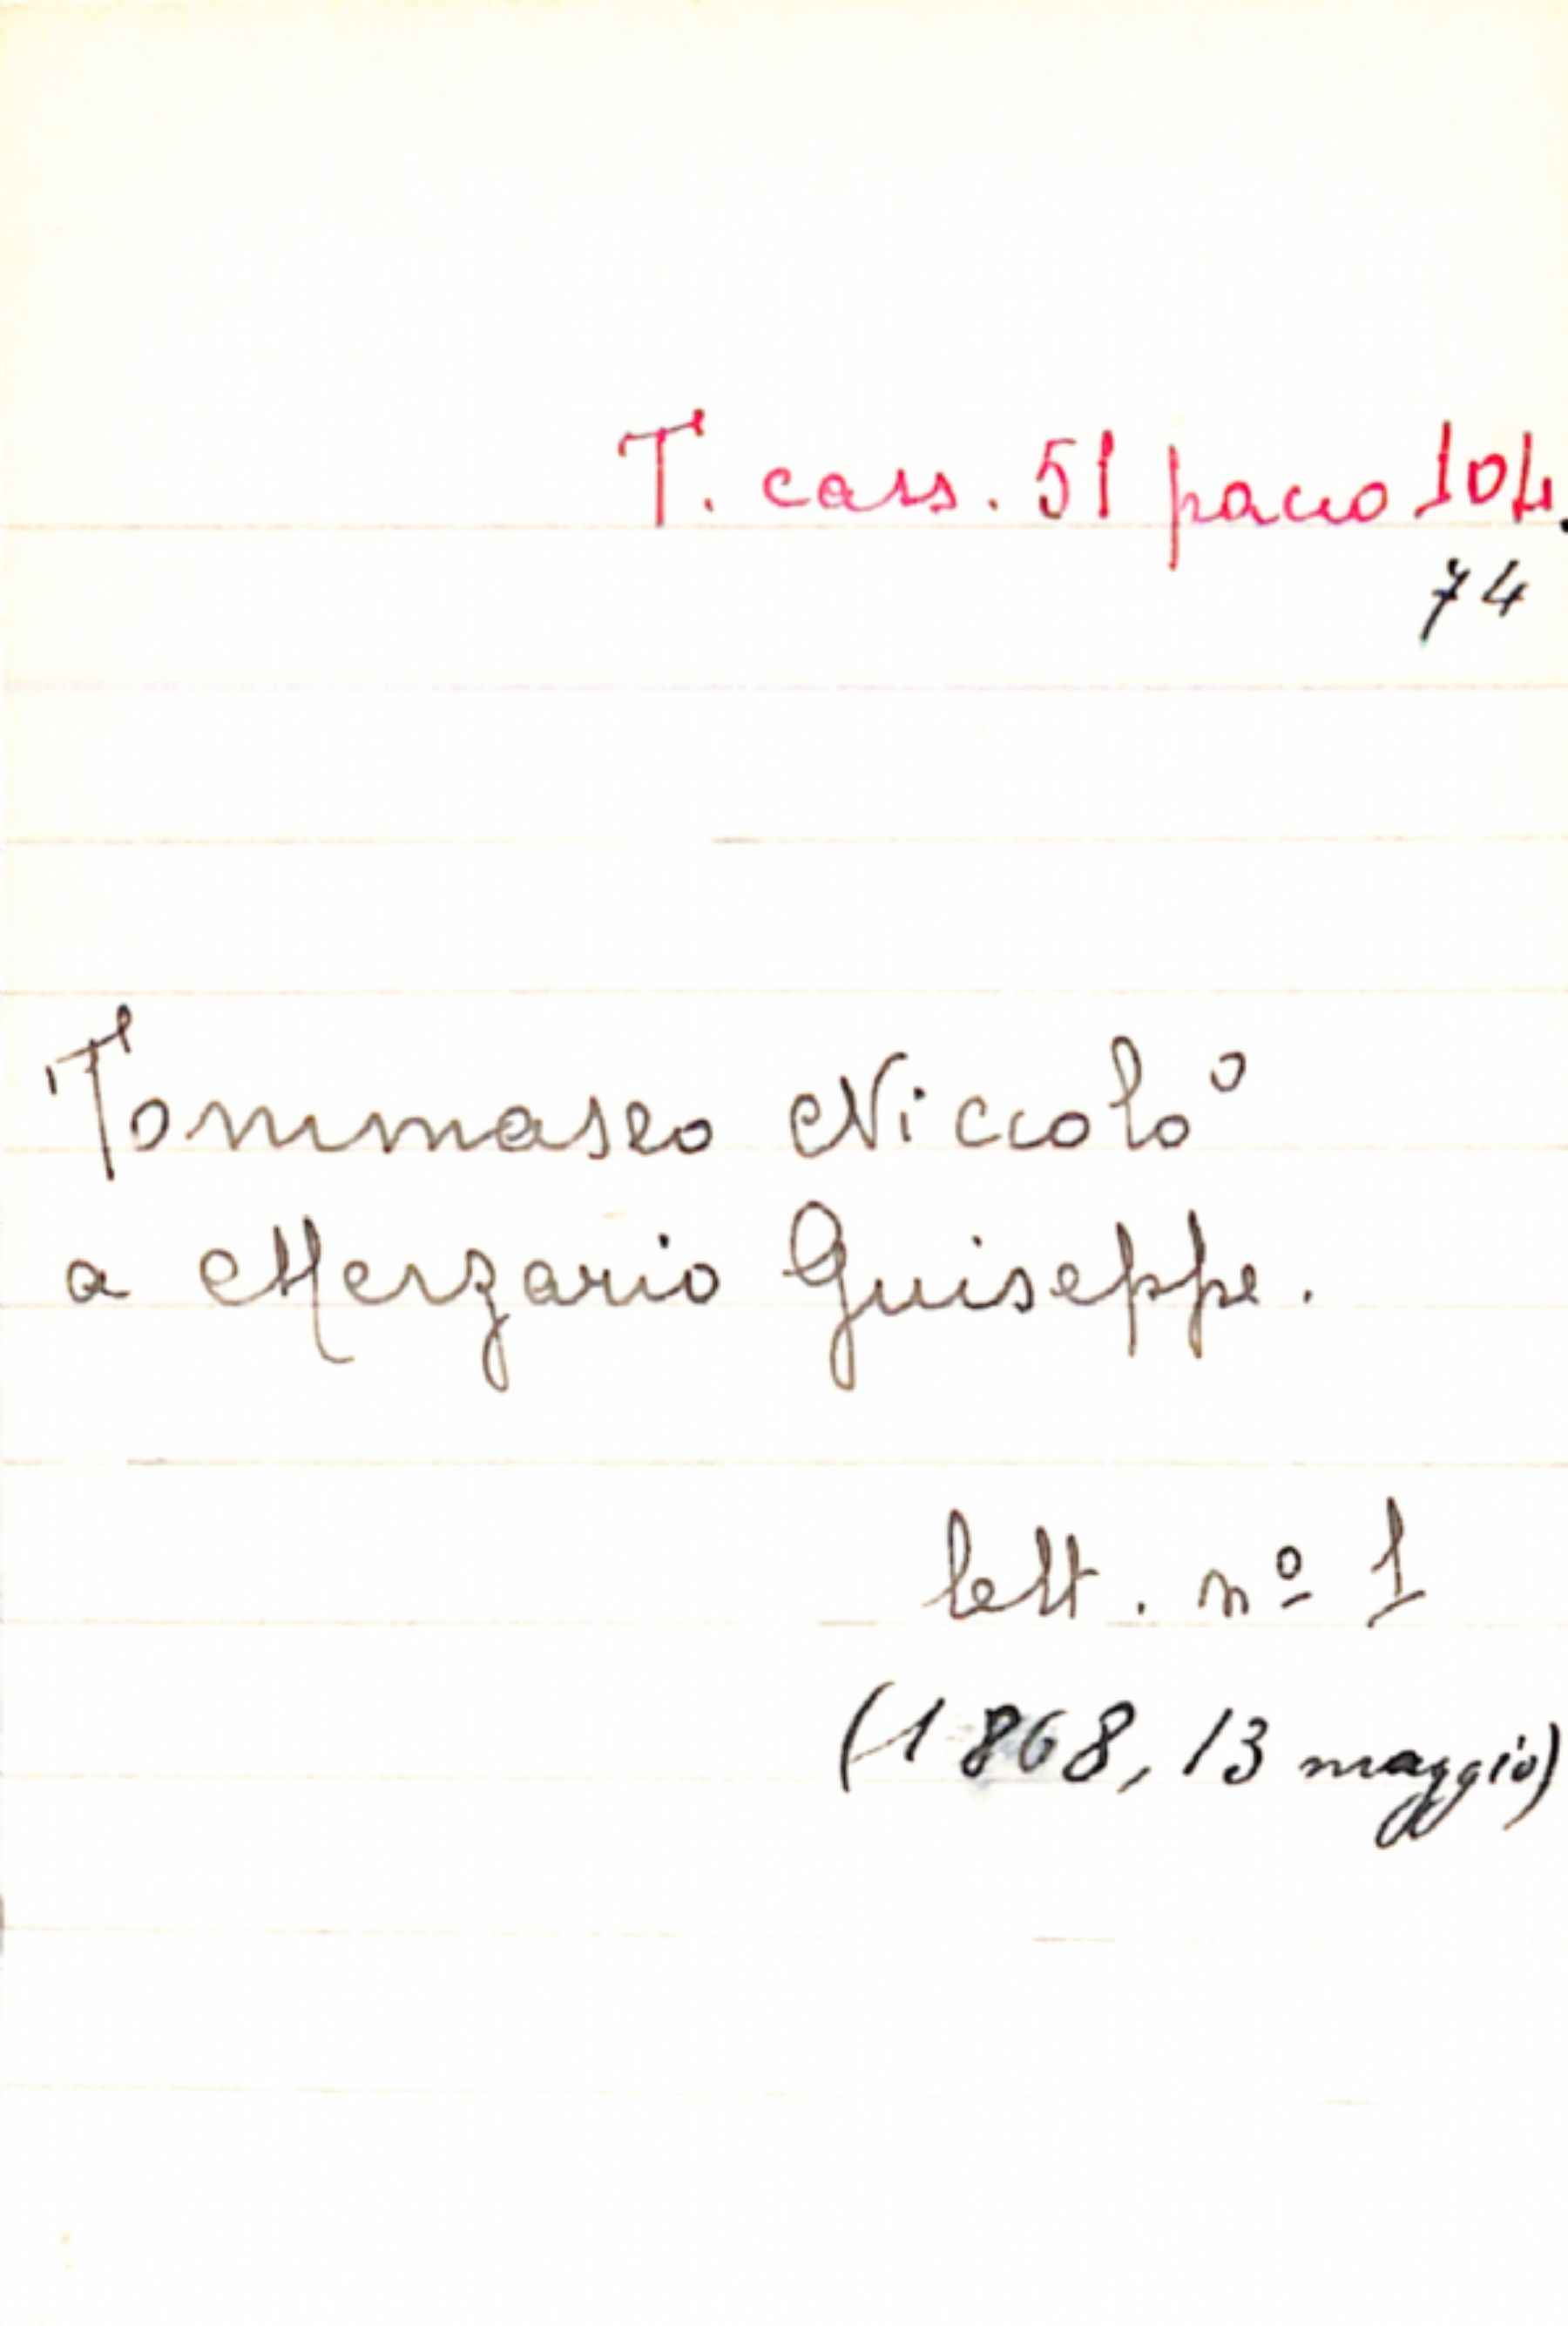 T. cass. 51 pacco 104.
74
Tommaseo Niccolo°
a Merzario Guiseppe.
lett. nº 1
(1868, 13 maggio)